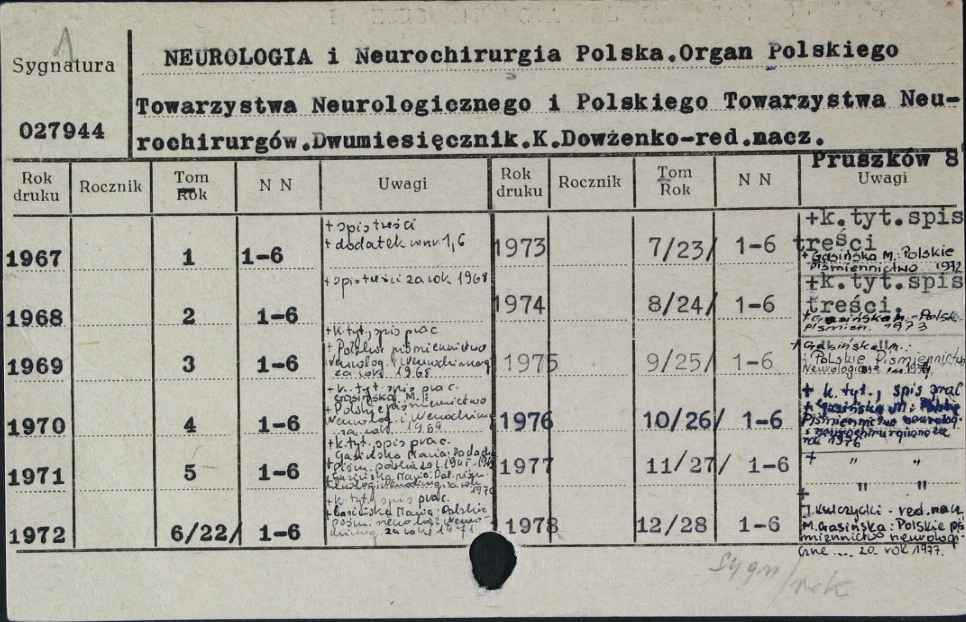 Sygnatura
027944
NEUROLOGIA i Neurochirurgia Polska.Organ Polskiego
Towarzystwa Neurologicznego i Polskiego Towarzystwa Neu-
rochirurgów.Dwumiesięcznik.K.Dowżenko-red.nacz.
Pruszków 8
Rok druku Rocznik Tom Rok N N Uwagi Rok druku Rocznik Tom Rok N N Uwagi
1967 1 1-6 + spis treści
+ dodatek w nr. 1,6
1968 2 1-6 + spis treści za rok 1968
1969 3 1-6 + k. tyt., spis prac
+ Polskie piśmiennictwo
za rok 1968
1970 4 1-6 + k. tyt. spis prac.
Gasińska M.:
za rok 1969
1971 5 1-6 + k. tyt. spis prac.
Gasińska Maria:
1972 6/22/ 1-6 + k. tyt. spis prac.
+ Gasińska Maria: Polskie
za rok 1971
1973 7/23/ 1-6 +k.tyt.spis
treści
+ Gasińska M.: Polskie
piśmiennictwo 1972
1974 8/24/ 1-6 +k.tyt.spis
treści.
1973
1975 9/25/ 1-6 + Gasińska M.:
Polskie Piśmiennictwo
1976 10/26/ 1-6 + k. tyt., spis prac
+ Gasińska M.: Polskie
Piśmiennictwo neurolog.
i neurochirurgiczne za
rok 1976
1977 11/27/ 1-6 + " "
" "
1978 12/28 1-6 +
J. Kulczycki - red. nacz.
M. Gasińska: Polskie piś
miennictwo neurologi-
czne ... za rok 1977.
sygn/rok